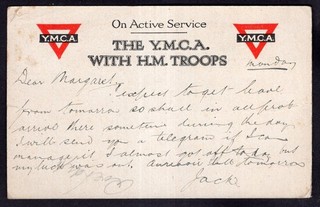 Y.M.C.A.
On Active Service
Y.M.C.A.
THE Y.M.C.A.
WITH H.M. TROOPS
Monday
Dear Margaret,
I expect to get leave
from tomorrow so shall in all prob
arrive there sometime during the day
I will send you a telegram if I can
manage it I almost got off today but
my luck was out. Aurevoir till tomorrow
Jack